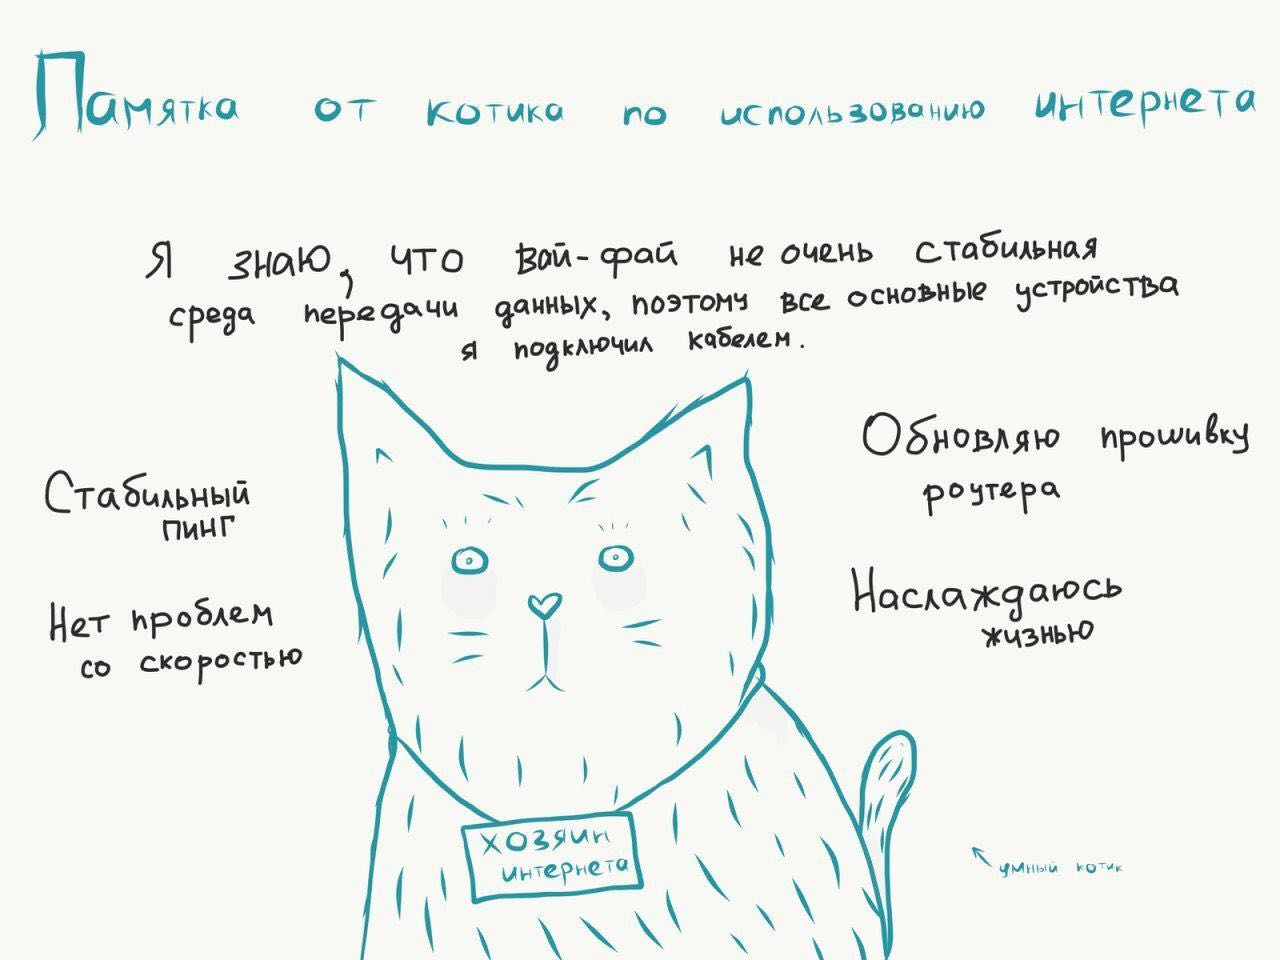 Памятка от котика по использованию интернета
Я знаю, что вай-фай не очень стабильная
среда передачи данных, поэтому все основные устройства
я подключил кабелем.
Стабильный
пинг
Нет проблем
со скоростью
Обновляю прошивку
роутера
Наслаждаюсь
жизнью
хозяин
интернета
умный котик